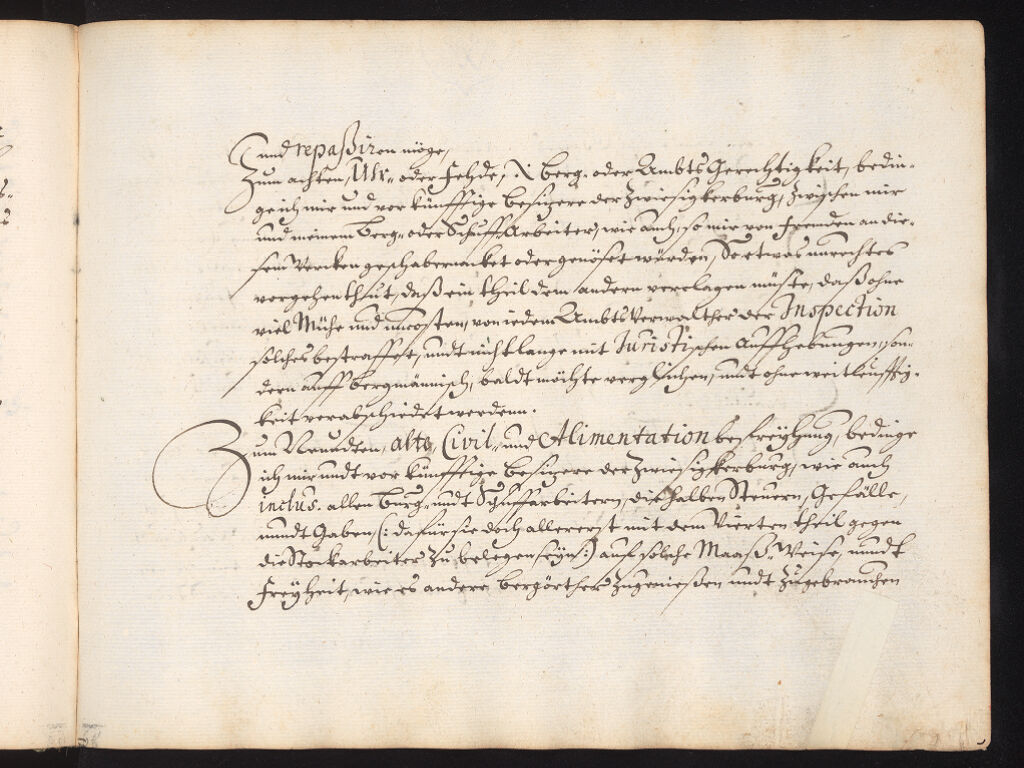 und repaßiren möge,
Zum achten, Uhr- oder Fehde, Berg- oder AmbtsGerechtigkeit, bedin-
ge ich mir und vor künfftige besizere der Zwiesigkerburg, zwischen mir
und meinem Berg- oder Schuff-Arbeiter, wie auch, so mir von frembden an die-
sem Wercken geschabernacket oder genöset würden, So etwas unrechtes
vorgehen thut, daß ein theil dem andern verclagen müste, daß ohne
viel Mühe und uncosten, von iedem AmbtsVerwalther der Inspection
solches bestraffet, undt nicht lange mit Juristischen Auffhebungen, son-
dern auff bergmännisch, baldt möchte verglichen, undt ohne weitleufftig-
keit verabschiedet werdenn.
Zum Neundten, alto, Civil- und Alimentation befreyhung, bedinge
ich mir undt vor künfftige besizere der Zwiesigkerburg, wie auch
inclus. allen Burg- undt Schuffarbeitern, die halben Steuern, Gefälle,
unndt Gaben, (: dafür sie doch allererst mit dem Vierten theil gegen
die Stockarbeiter zu belegen seyn :) auf solche Maaß, Weise, unndt
Freyheit, wie es andere bergörther zugenießen undt zugebrauchen